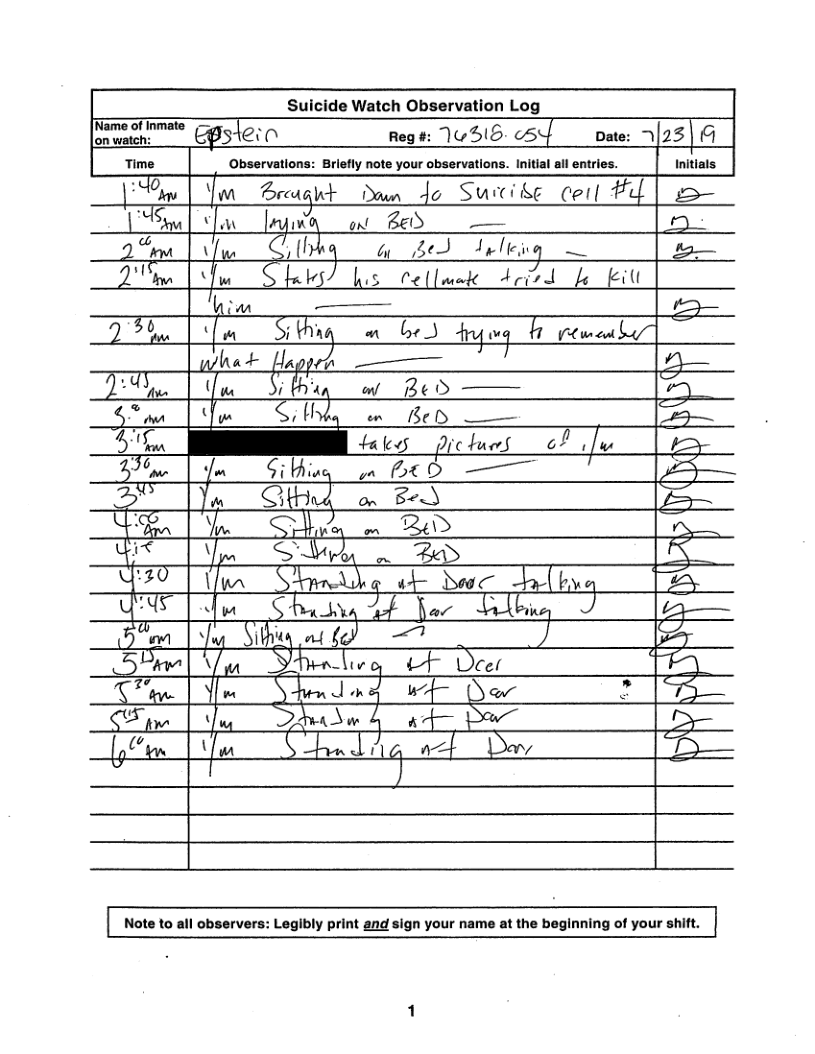 Suicide Watch Observation Log
Name of Inmate on watch: Epstein Reg #: 76318-054 Date: 7/23/19
Time Observations: Briefly note your observations. Initial all entries. Initials
1:40 AM I/m Brought Down to Suicide cell #4
1:45 AM I/m laying on BED
2:00 AM I/m Sitting on Bed talking
2:15 AM I/m States his cellmate tried to kill
him
2:30 AM I/m Sitting on bed trying to remember
what Happen
2:45 AM I/m Sitting on BED
3:00 AM I/m Sitting on BED
3:15 AM takes pictures of I/m
3:30 AM I/m Sitting on BED
3:45 I/m Sitting on Bed
4:00 AM I/m Sitting on BED
4:15 I/m Sitting on BED
4:30 I/m Standing at Door talking
4:45 I/m Standing at Door talking
5:00 AM I/m Sitting on Bed
5:15 AM I/m Standing at Door
5:30 AM I/m Standing at Door
AM I/m Standing at Door
6:00 AM I/m Standing at Door
Note to all observers: Legibly print and sign your name at the beginning of your shift.
1